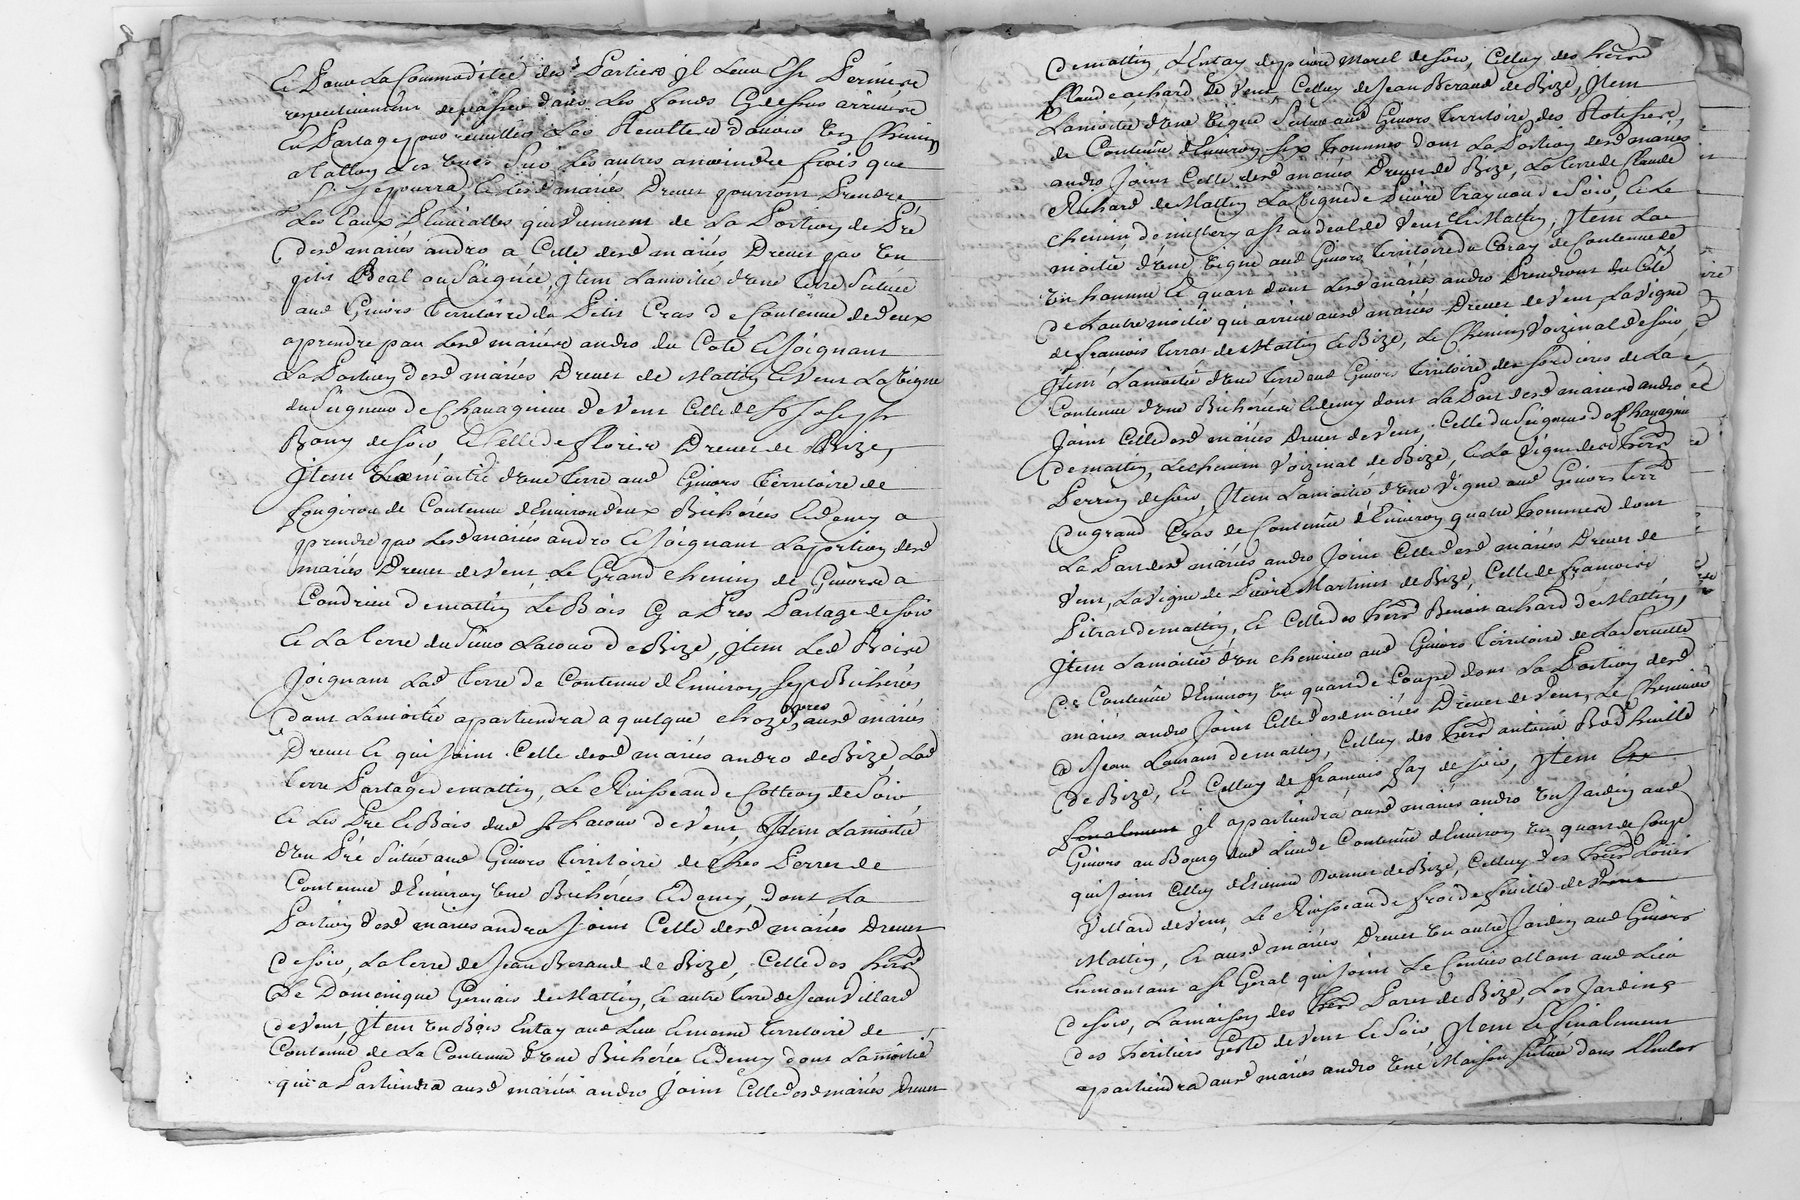 Et Pour La Commodité des Parties Jl Leur Est Permis
respectivement de passer dans Les fonds Cy dessus arrivés
En Partage pour recuillir Les Recoltes d'avoir Un Chemin
a talton Les Uns Sur Les autres amoindre frais que
se pourra, Et Lesd mariés Drevet pourront Prendre
Les Eaux Pluvialles qui Viennent de La Portion de Pré
desd mariés andro a Celle desd mariés Drevet par Un
petit Béal ou Saignée, Jtem Lamoitié d'Une terre Scituée
aud Givors territoire du Petit Cras de Contenue de deux
a prendre par Lesd mariés andro du Coté Et Joignant
La Portion desd mariés Drevet de Mattin Et Vent La Vigne
du Seigneur de Chavagnieu de Vent Celle de Sr Joseph
Bony de Soir Et Celle de florier Drevet de Bize,
Jtem La moitié d'Une terre aud Givors territoire de
fougirou de Contenue d'Environ deux Bicherées Et demy a
prendre par Lesd mariés andro Et Joignant La portion desd
mariés Drevet de Vent, Le Grand chemin de Givors a
Condrieu de mattin Le Bois Cy aPres Partagé de Soir
Et La terre du Sieur Lacour de Bize, Jtem Led Bois
Joignant Lad terre de Contenue d'Environ Six Bicherées
dont Lamoitié apartiendra a quelque choze pres, ausd mariés
Drevet Et qui Joint Celle desd mariés andro de Bize, Lad
terre Partagé de mattin, Le Ruisseau de Cotteon de Soir,
Et Les Pré Et Bois dud Sr Lacour de Vent, Jtem Lamoitié
d'Un Pré Scitué aud Givors territoire de Les Perres de
Contenue d'Environ Une Bicherée Et demy, dont La
Portion desd mariés andro Joint Celle desd mariés Drevet
de Soir, La terre de Jean Beraud de Bize, Celle des hérs
De Dominique Gervais de Mattin, Et autre terre de Jean Villard
de Vent, Jtem Un Bois Entay aud Lieu Et meme territoire de
Contenue de La Contenue d'Une Bicherée Et demy dont Lamoitié
qui aPartiendra ausd mariés andro Joint Celle desd mariés Drevet
de mattin, L'Entay de pierre Morel de Soir, Celluy des hérs
Claude achard de Vent, Celluy de Jean Beraud de Bize, Jtem
Lamoitié d'Une Vigne Scituée aud Givors territoire des Rotisses,
de Contenue d'Environ Six hommes dont La Portion desd mariés
andro Joint Celle desd mariés Drevet de Bize, La terre de Claude
Richard de Mattin La Vigne de Pierre traynard de Soir, Et Le
chemin de millery a St andeol de Vent Et Mattin, Jtem La
moitié d'Une Vigne aud Givors territoire du Coray de Contenue de
Un homme Et quart dont Lesd mariés andro Prendront du Coté
de L'autre moitié qui arrive ausd mariés Drevet de Vent, La Vigne
de francois terras de Mattin Et Bize, Le Chemin Voizinal de Soir,
Jtem Lamoitié d'Une terre aud Givors territoire des fordieres de La
Contenue d'Une Bicherée Et demy dont La Part desd mariés andro
Joint Celle desd mariés Drevet de Vent, Celle du Seigneur de Chavagnieu
de mattin, Le chemin Voizinal de Bize, Et La Vigne des hérs
Perrin de Soir, Jtem Lamoitié d'Une Vigne aud Givors terr
du grand Cras de Contenue d'Environ quatre hommes dont
La Part desd mariés andro Joint Celle desd mariés Drevet de
Vent, La Vigne de Pierre Martinet de Bize, Celle de francois
Pitrat de mattin, Et Celle des hérs Benoit achard de Mattin,
Jtem Lamoitié d'Un chenevier aud Givors territoire de La Servette
de Contenue d'Environ Un quart de Coupé dont La Portion desd
mariés andro Joint Celle desd mariés Drevet de Vent, Le Chenevier
de Jean Laurant de mattin, Celluy des hérs antoine Bodhuille
de Bize, Et Celluy de francois fay de Soir, Jtem Et
finalement Jl apartiendra ausd mariés andro Un Jardin aud
Givors au Bourg dud Lieu de Contenue d'Environ Un quart de Coupé
qui Joint Celluy d'Etienne Bonnet de Bize, Celluy des hérs Loüis
Villard de Vent, Le Ruisseau de froide feuille de Vent
Mattin, Et ausd mariés Drevet Un autre Jardin aud Givors
En montant a St Geral qui Joint Le Sentier allant aud Lieu
de Soir, Lamaison des hérs Paret de Bize, Les Jardins
des héritiers Gerle de Vent Et Soir, Jtem Et finalement
apartiendra ausd mariés andro Une Maison Scituée dans L'enclos